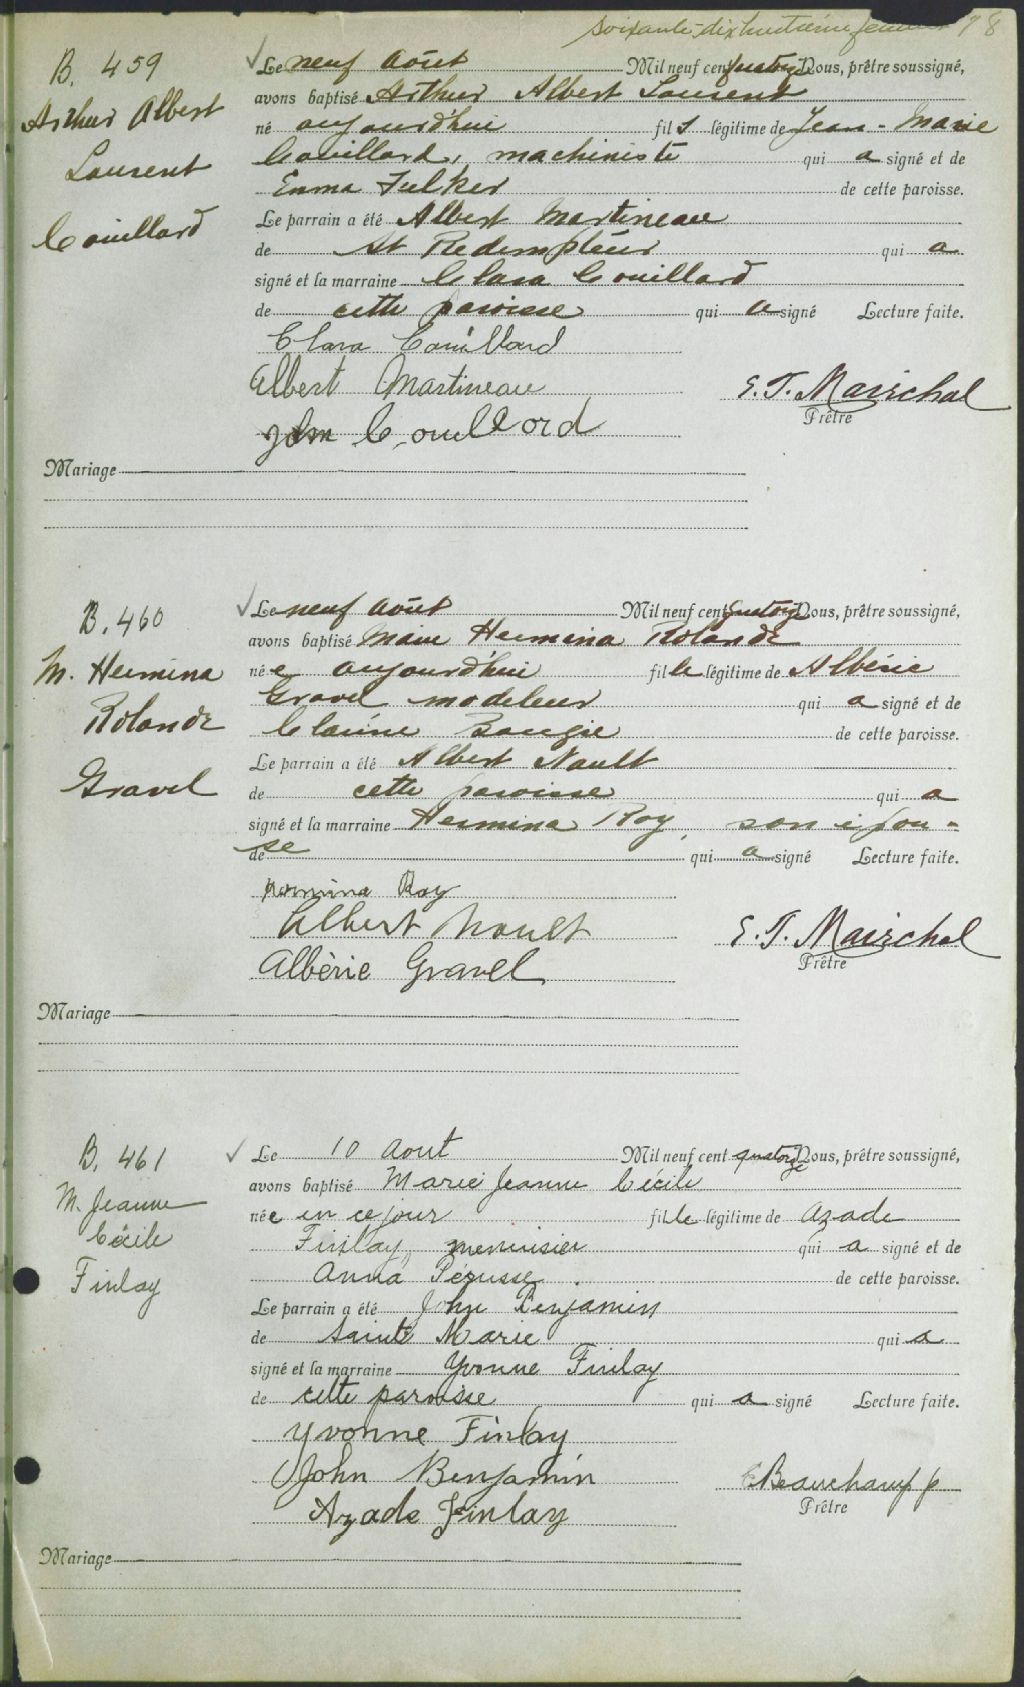 soixante-dix huitième feuillet 78
B. 459
Arthur Albert
Laurent
Couillard
Le neuf Août Mil neuf cent quatorze Nous, prêtre soussigné,
avons baptisé Arthur Albert Laurent
né aujourdhui fils légitime de Jean-Marie
Couillard, machiniste qui a signé et de
Emma Fulker de cette paroisse.
Le parrain a été Albert Martineau
de St Redempteur qui a
signé et la marraine Clara Couillard
de cette paroisse qui a signé Lecture faite.
Clara Couillard
Albert Martineau
John Couillard
E. T. Maréchal
Prêtre
Mariage
B. 460
M. Hermina
Rolande
Gravel
Le neuf Août Mil neuf cent quatorze Nous, prêtre soussigné,
avons baptisé Marie Hermina Rolande
née aujourd'hui fille légitime de Albéric
Gravel modeleur qui a signé et de
de cette paroisse.
Le parrain a été Albert Nault
de cette paroisse qui a
signé et la marraine Hermina Roy, son épou-
de se qui a signé Lecture faite.
Hermina Roy
Albert Nault
Albèric Gravel
E. T. Maréchal
Prêtre
Mariage
B. 461
M. Jeanne
Cécile
Finlay
Le 10 Aout Mil neuf cent quatorze Nous, prêtre soussigné,
avons baptisé Marie Jeanne Cécile
née en ce jour fille légitime de Azade
Finlay, menuisier qui a signé et de
Anna Pérusse. de cette paroisse.
Le parrain a été John Benjamin
de Sainte Marie qui a
signé et la marraine Yvonne Finlay
de cette paroisse qui a signé Lecture faite.
Yvonne Finlay
John Benjamin
Azade Finlay
Beauchamp p
Prêtre
Mariage